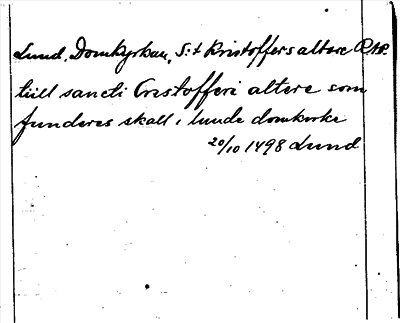 Lund, Domkyrkan, S:t Kristoffers altare
till sancti Cristofferi altere som
funderes skall i lunde domkirke
20/10 1498 Lund